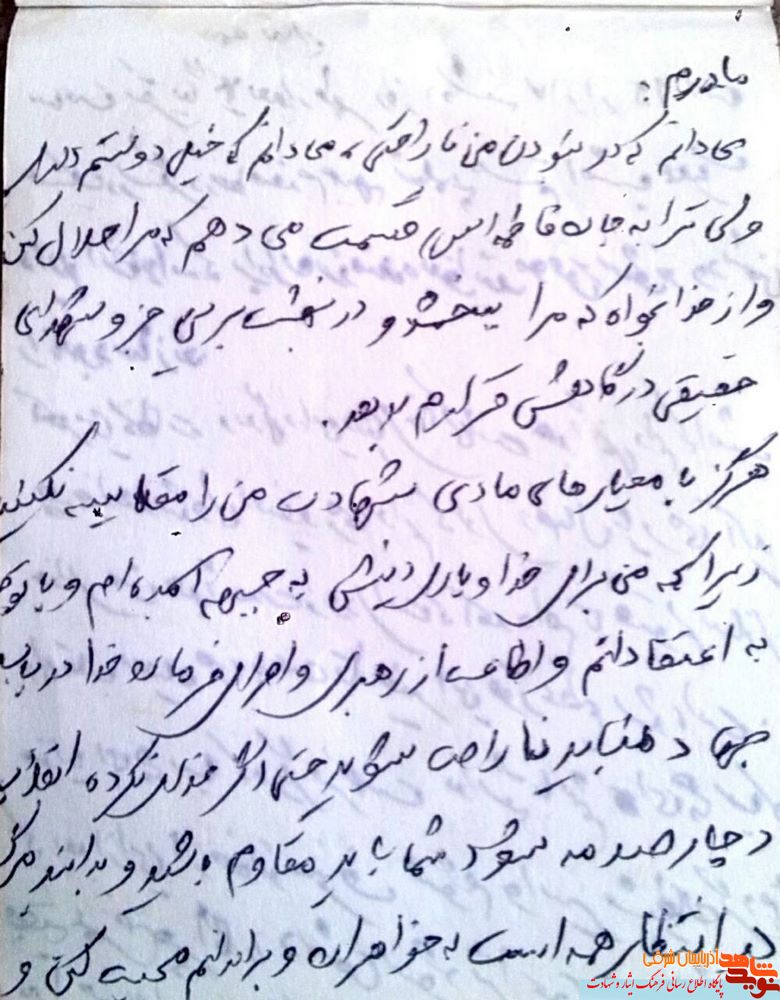 مادرم:
می دانم که در نبودن من ناراحتی، می دانم که خیلی دوستم داری
ولی ترا به جان فاطمه اس قسمت می دهم که مرا حلال کن
و از خدا بخواه که مرا ببخشد و در بهشت برین جزو شهدای
حقیقی درگاهش قرارم بدهد.
هرگز با معیارهای مادی شهادت من را مقایسه نکنید
زیرا که من برای خدا و یاری دینش به جبهه آمده ام و با توجه
به اعتقاداتم و اطاعت از رهبری و اجرای فرمان خدا در باب
جهاد نباید ناراحت شوید حتی اگر خدای نکرده انقلاب
دچار صدمه شود شما باید مقاوم باشید و بدانید مرگ
در انتظار همه است به خواهران و برادرانم محبت کنی و
نوید شاهد آذربایجان شرقی
پایگاه اطلاع رسانی فرهنگ ایثار و شهادت